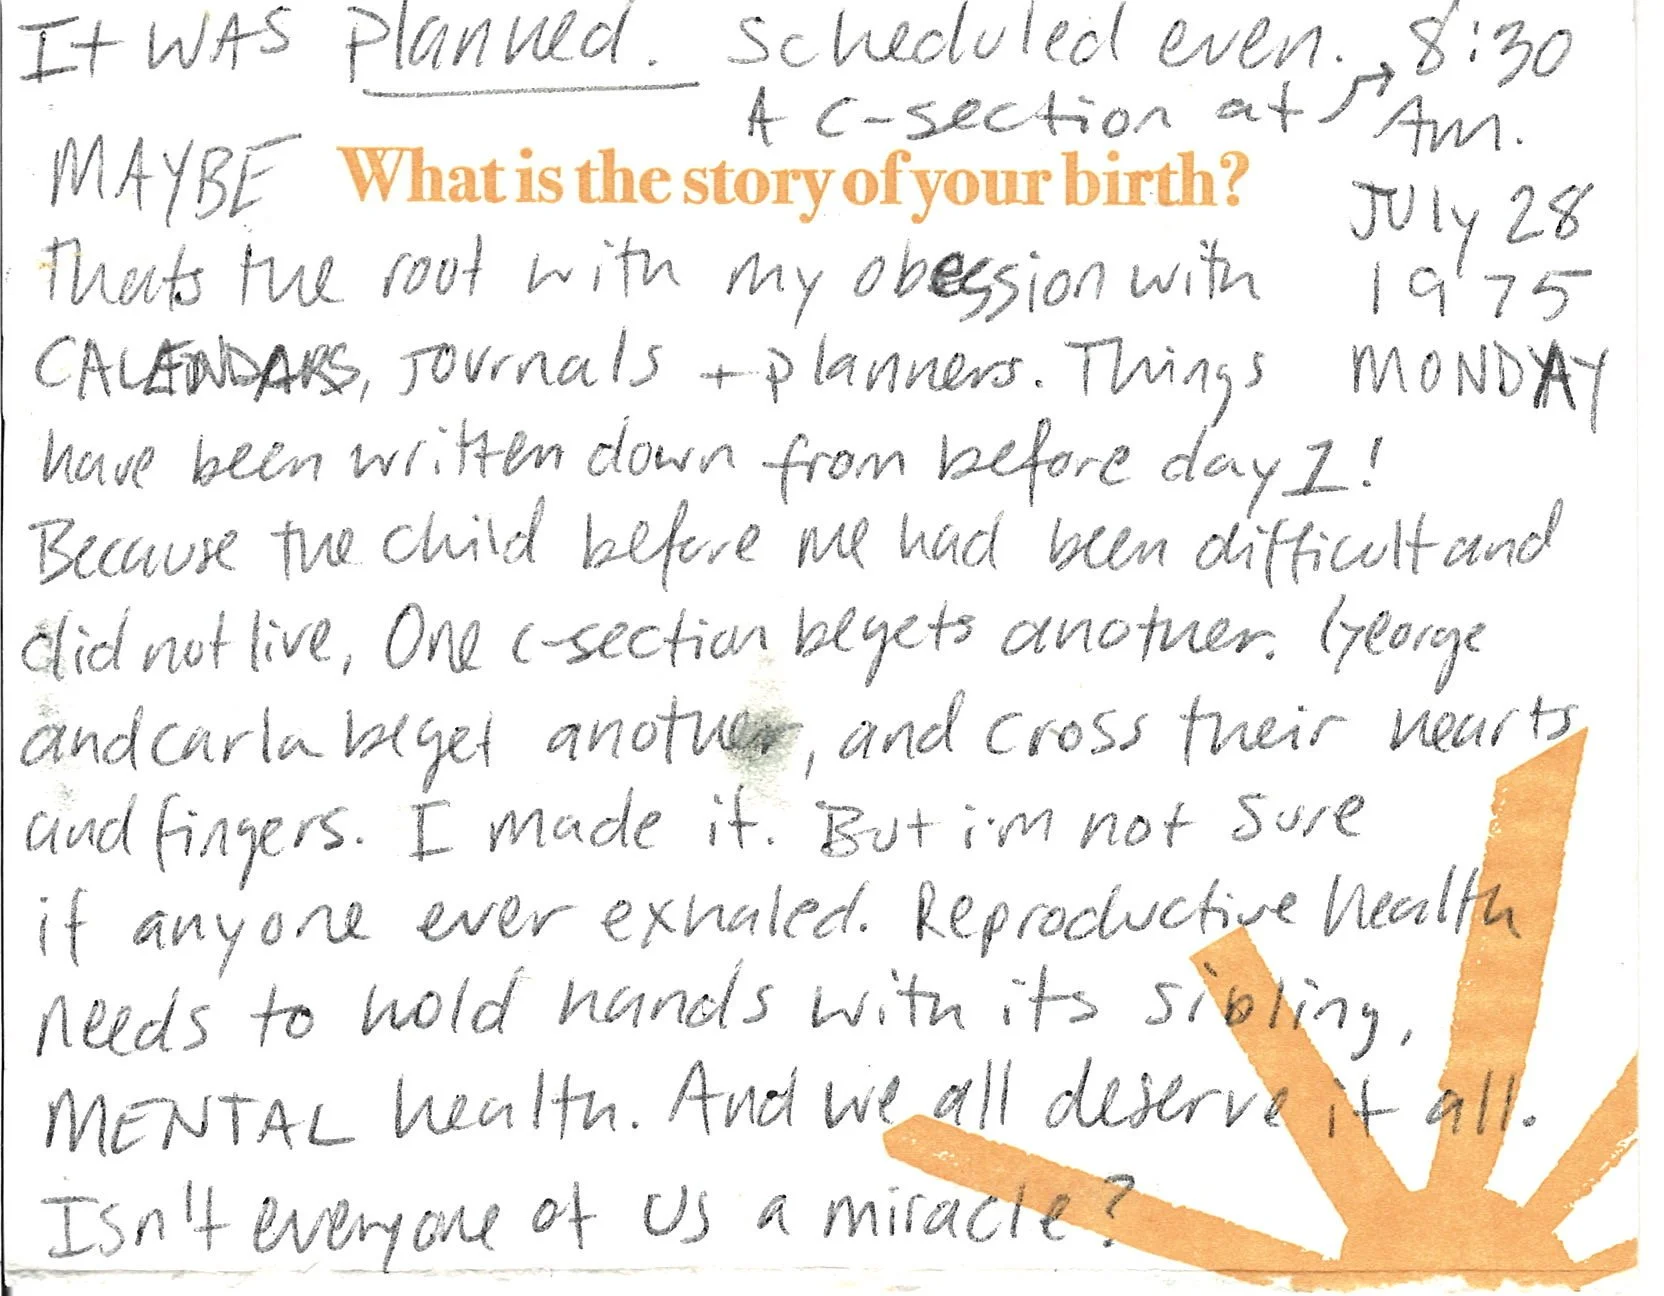 It WAS planned. Scheduled even. 8:30
A C-section at Am.
MAYBE What is the story of your birth? July 28
thats the root with my obession with 1975
CALENDARS, Journals + planners. Things MONDAY
have been written down from before day 1!
Because the child before me had been difficult and
did not live, One c-section begets another. George
and carla beget another, and cross their hearts
and fingers. I made it. But i'm not sure
if anyone ever exhaled. Reproductive health
needs to hold hands with its sibling,
MENTAL health. And we all deserve it all.
Isn't everyone of us a miracle?